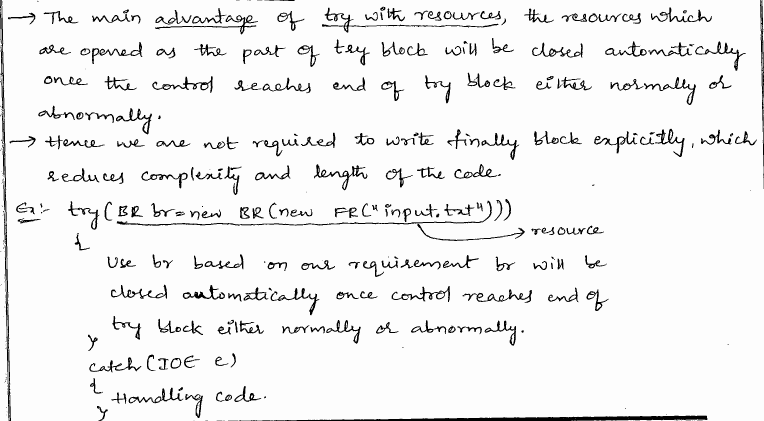 → The main advantage of try with resources, the resources which
are opened as the part of try block will be closed automatically
once the control reaches end of try block either normally or
abnormally.
→ Hence we are not required to write finally block explicitly, which
reduces complexity and length of the code.
Ex:- try(BR br=new BR(new FR("input.txt")))
→ resource
{
Use br based on our requirement br will be
closed automatically once control reaches end of
try block either normally or abnormally.
}
catch(IOE e)
{
Handling code.
}